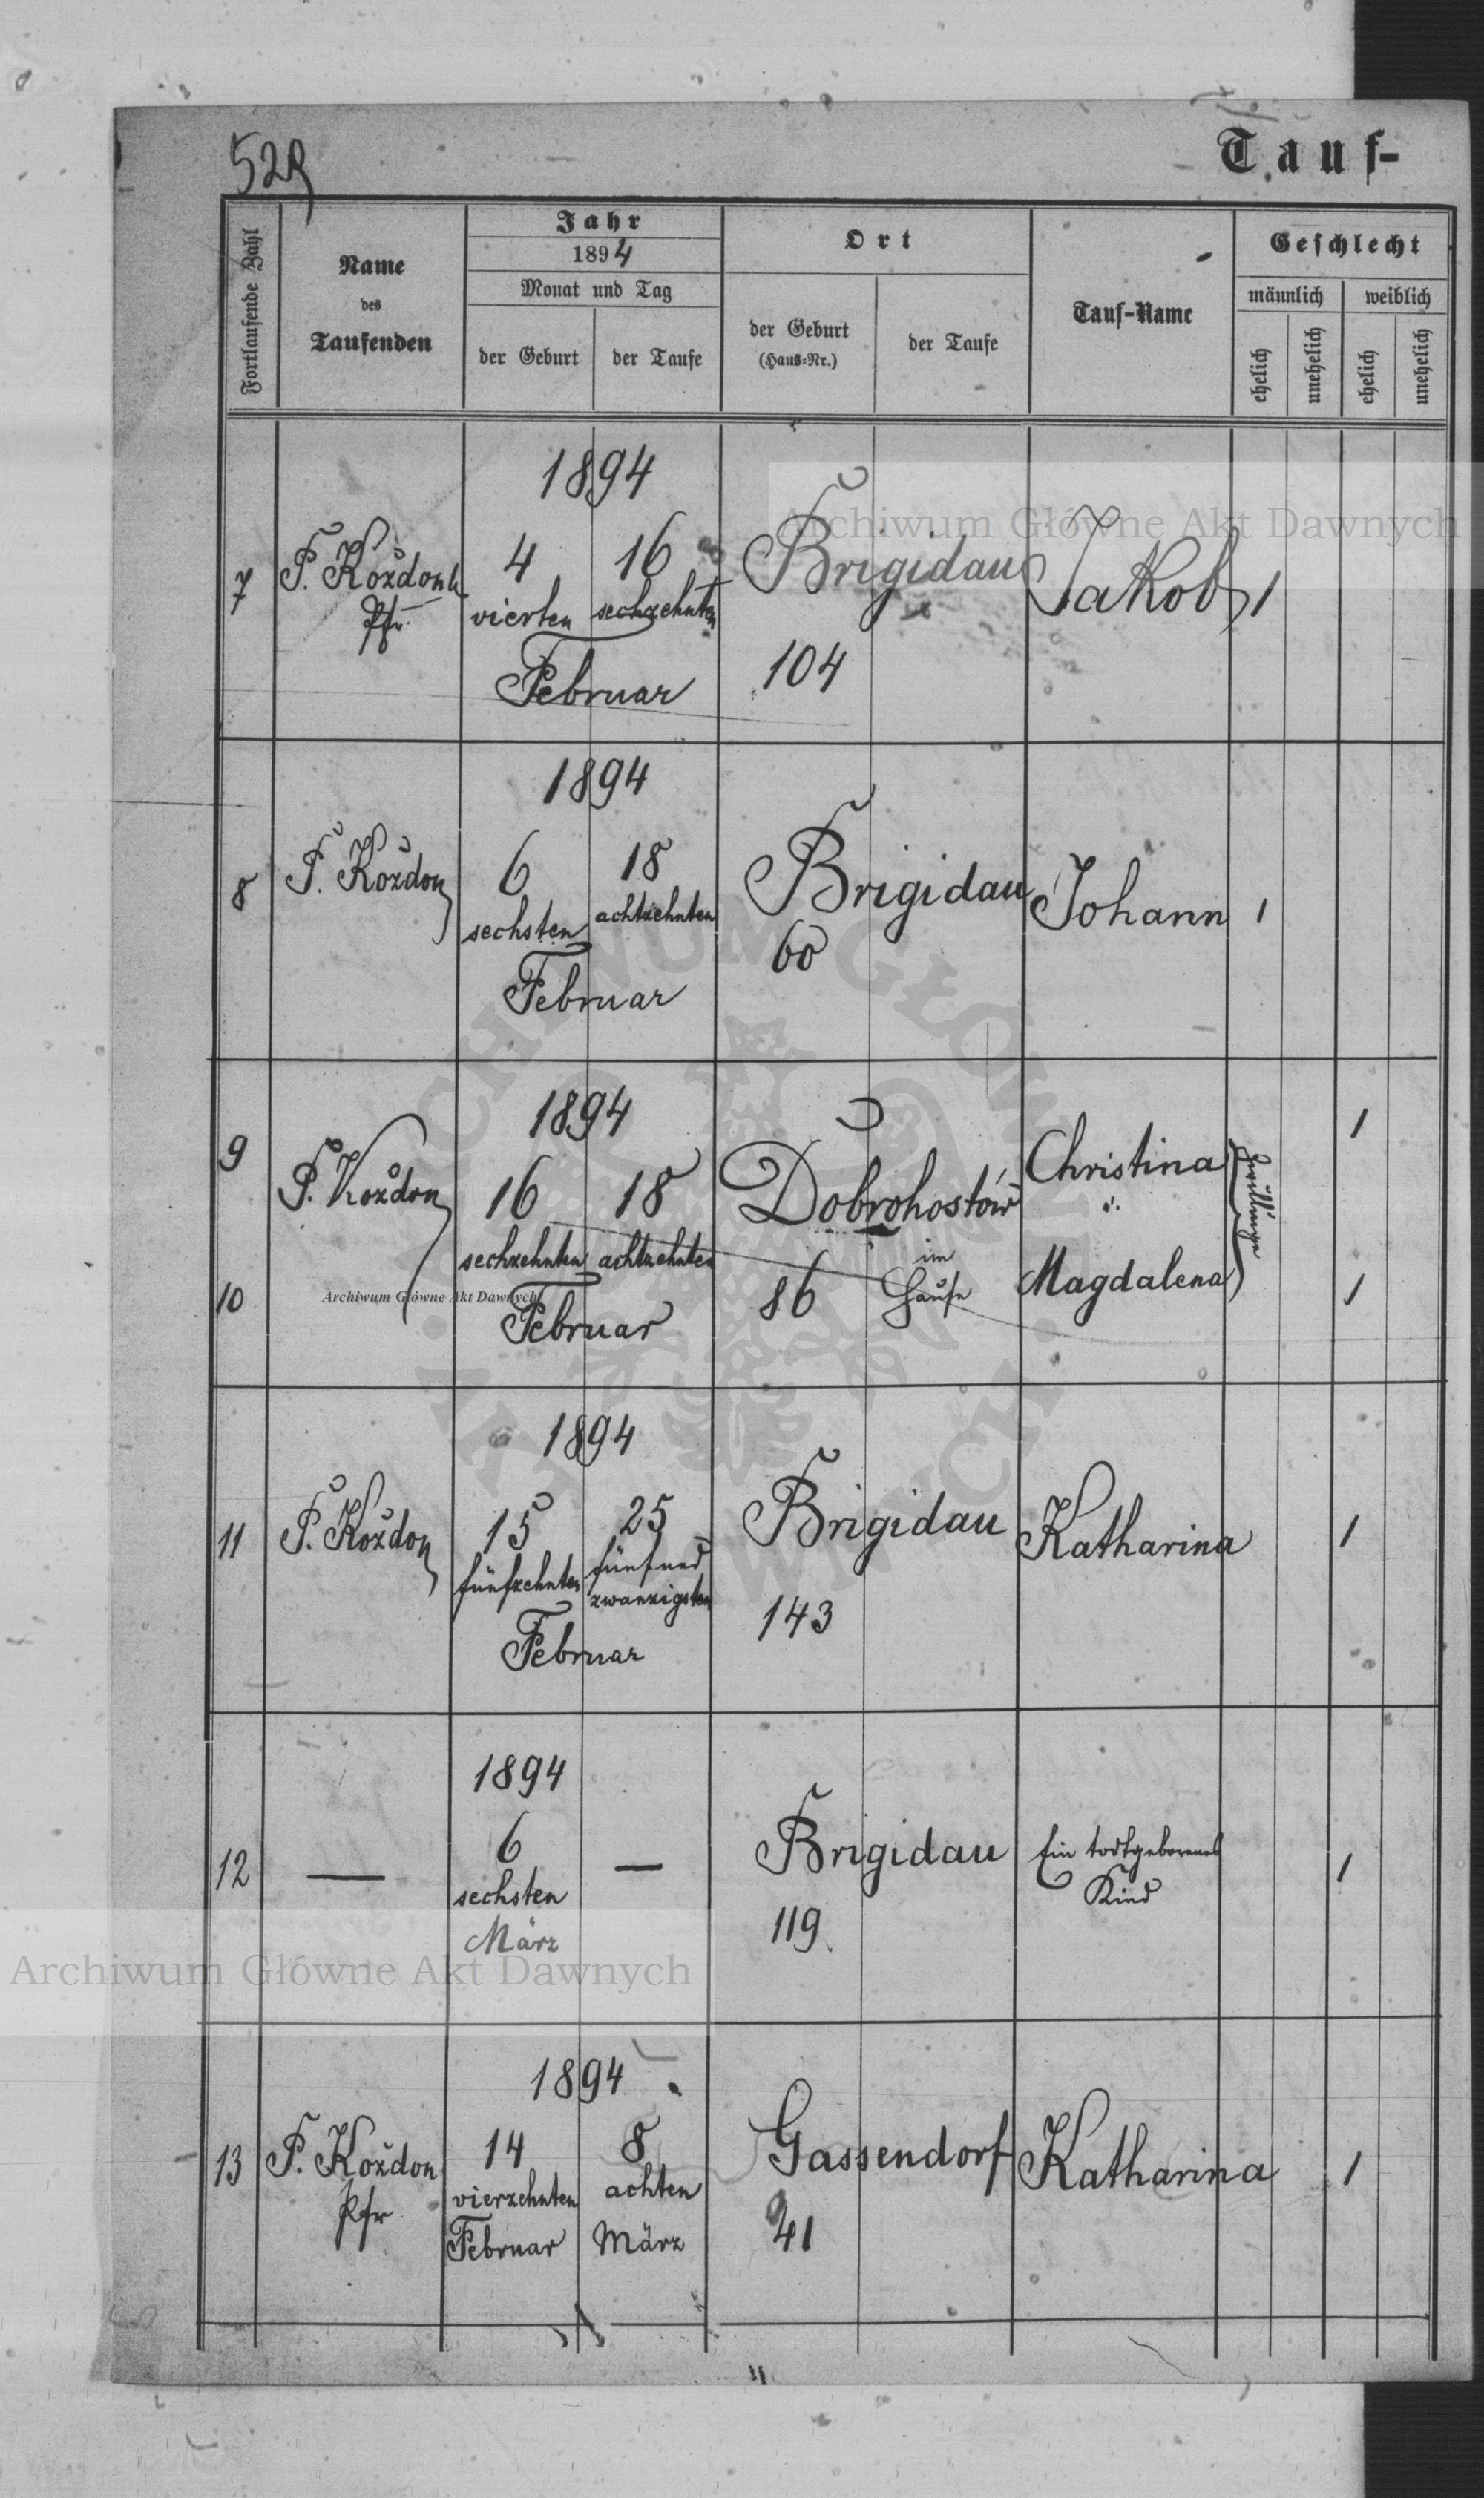 529
Tauf-
Fortlaufende Zahl
Name
des
Taufenden
Jahr
1894
Monat und Tag
der Geburt
der Taufe
Ort
der Geburt
(Haus-Nr.)
der Taufe
Tauf-Name
Geschlecht
männlich
weiblich
ehelich
unehelich
ehelich
unehelich
Archiwum Główne Akt Dawnych
1894
7
P. Koždon
Pfr.
4
vierten
16
sechzehnten
Februar
Brigidau
104
Jakob
1
1894
8
P. Koždon
6
sechsten
18
achtzehnten
Februar
Brigidau
60
Johann
1
1894
9
10
P. Koždon
16
sechzehnten
18
achtzehnten
Februar
Dobrohostów
86
im
Hause
Christina
Magdalena
Zwillinge
1
1
Archiwum Główne Akt Dawnych
ARCHIWUM GŁÓWNE AKT DAWNYCH
1894
11
P. Koždon
15
fünfzehnten
25
fünfund
zwanzigsten
Februar
Brigidau
143
Katharina
1
1894
12
—
6
sechsten
März
—
Brigidau
119
Ein todtgeborenes
Kind
1
Archiwum Główne Akt Dawnych
1894
13
P. Koždon
Pfr
14
vierzehnten
Februar
8
achten
März
Gassendorf
41
Katharina
1